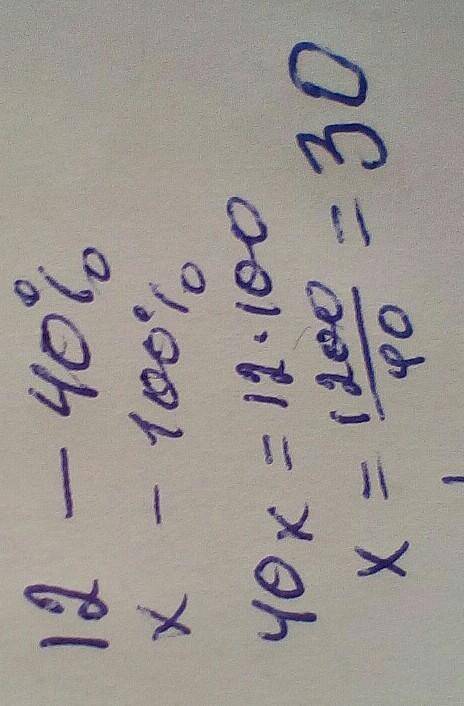 12 — 40%
x — 100%
40x = 12·100
x = 1200/40 = 30